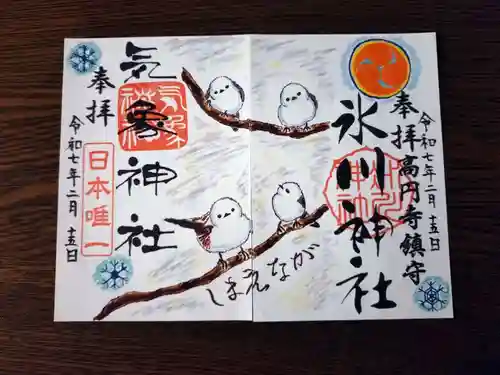 奉拝
高円寺鎮守
氷川神社
令和七年二月十五日
しまえなが
奉拝
気象神社
日本唯一
令和七年二月十五日